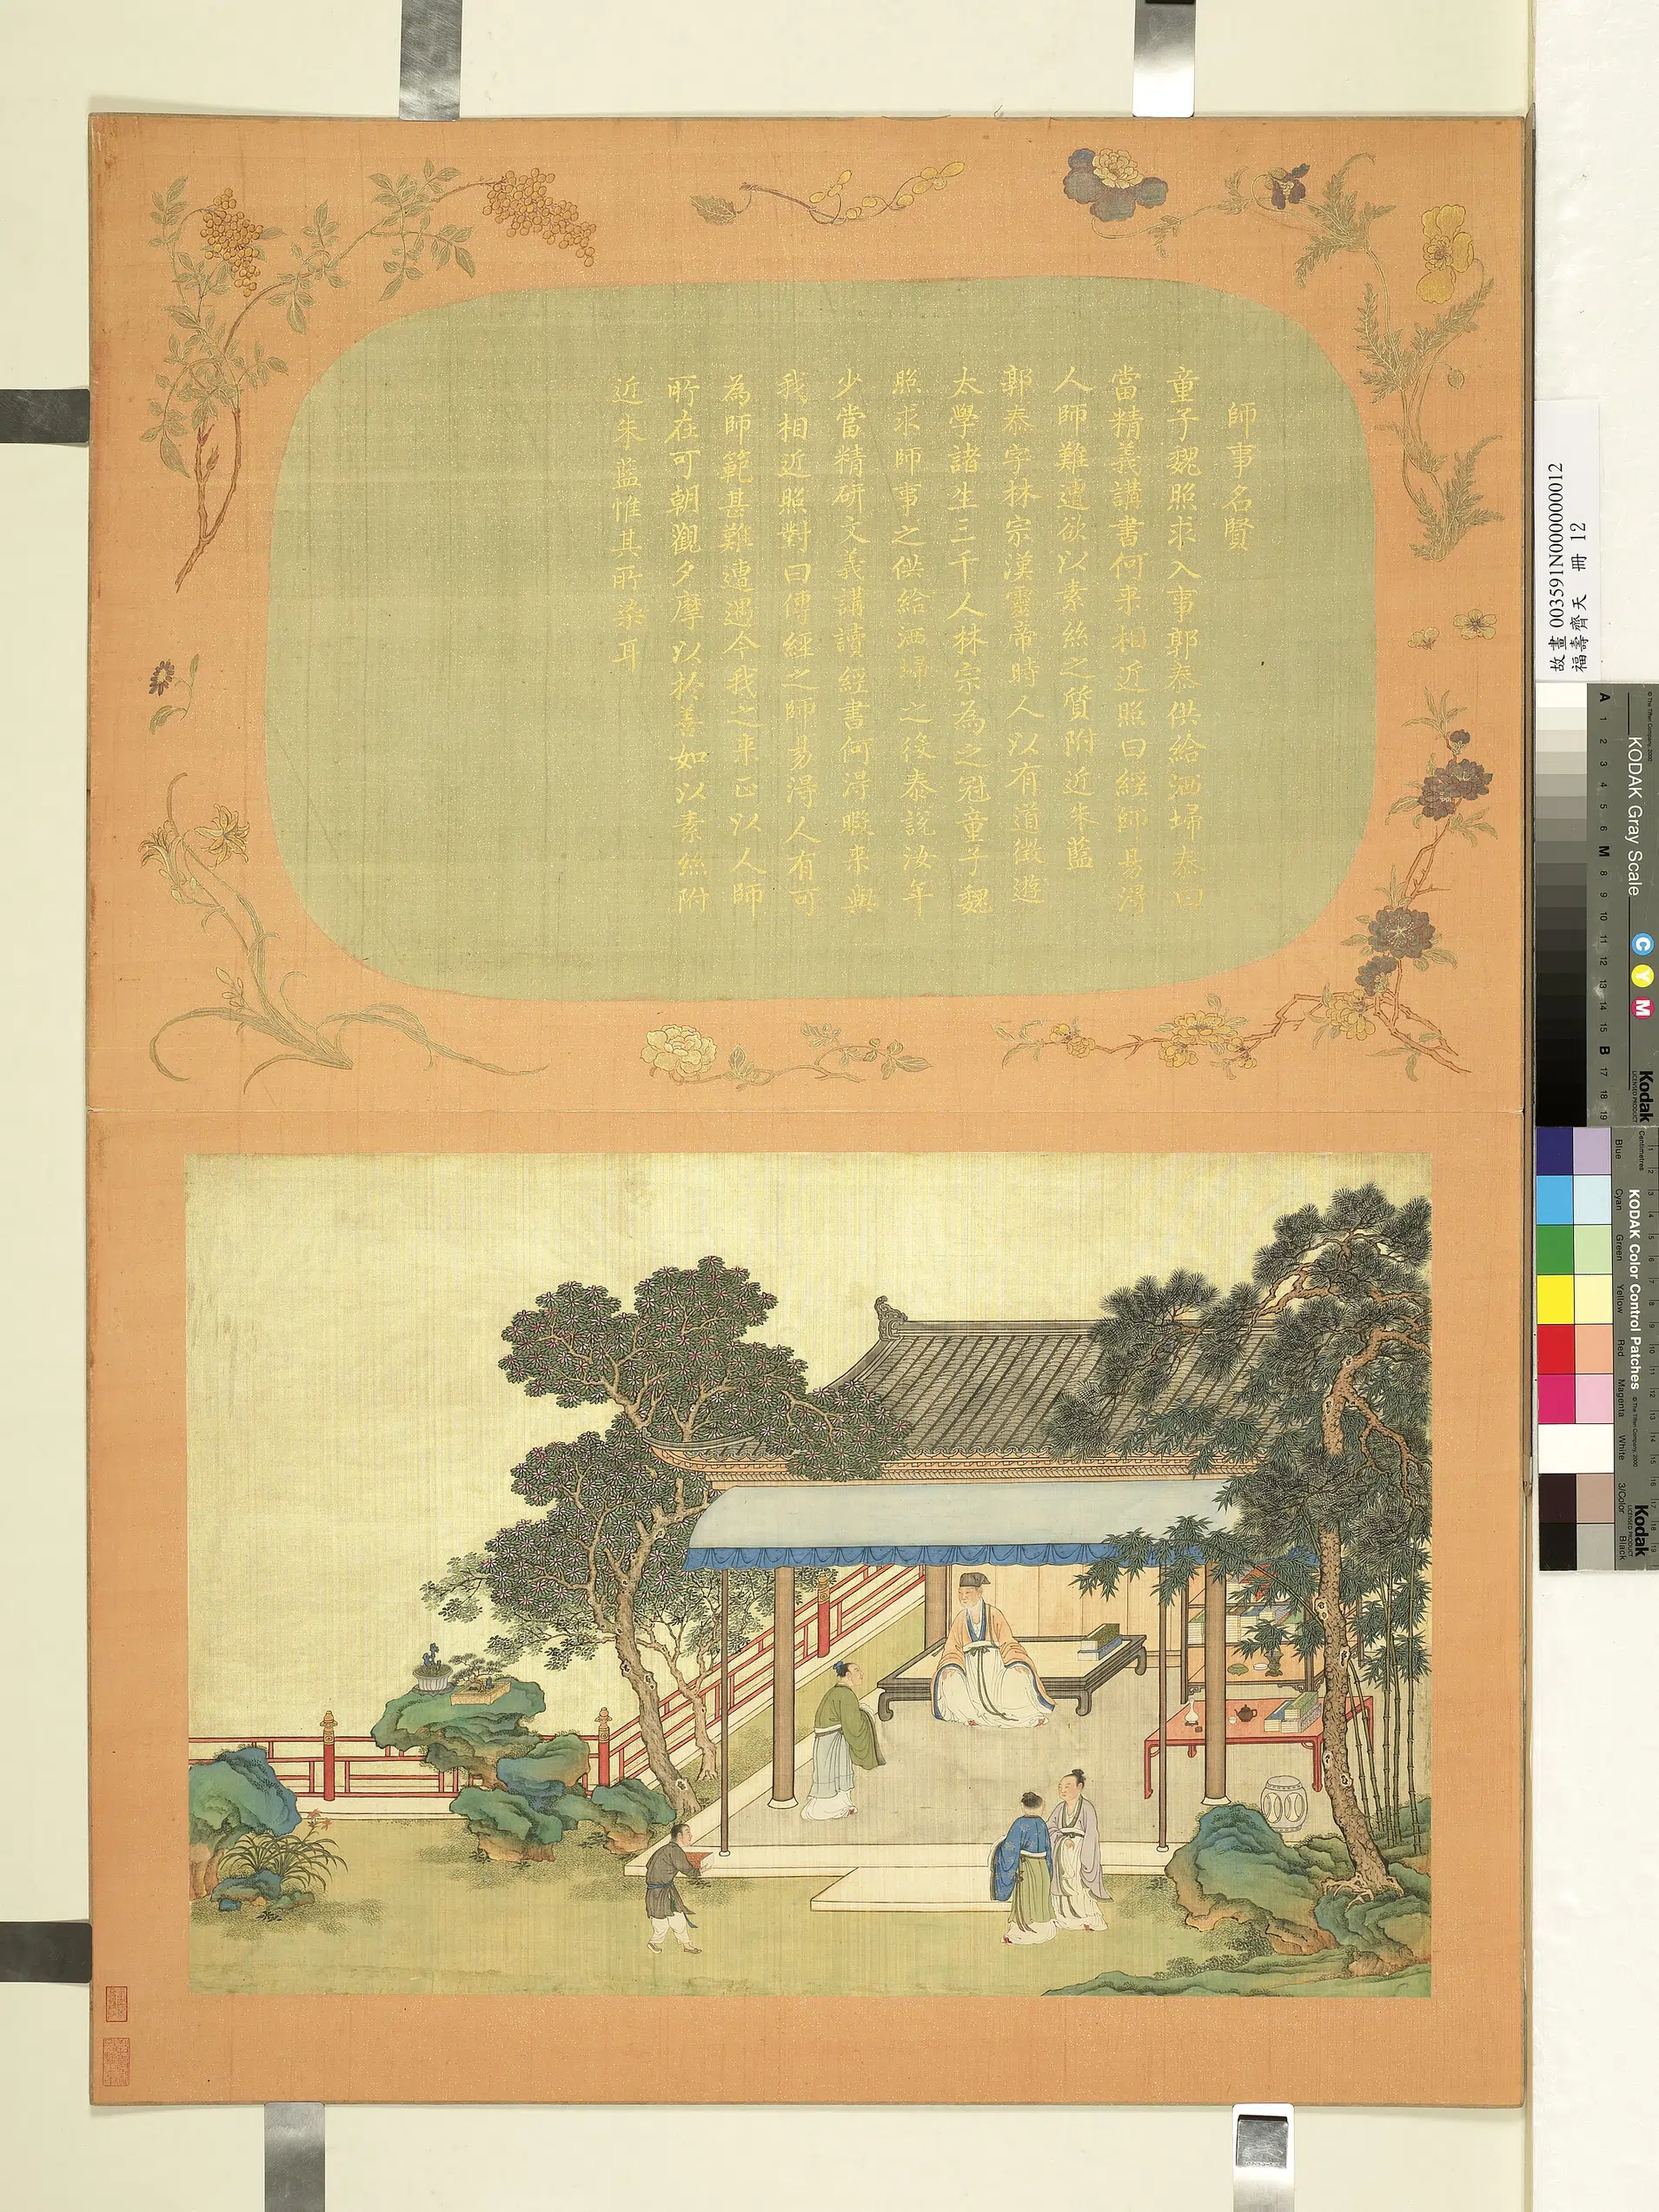 師事名賢
童子魏照求入事郭泰供給洒埽泰曰
當精義講書何来相近照曰經師易得
人師難遭欲以素絲之質附近朱藍
郭泰字林宗漢靈帝時人以有道徵遊
太學諸生三千人林宗為之冠童子魏
照求師事之供給洒埽之後泰說汝年
少當精研文義講讀經書何得暇来與
我相近照對曰傳經之師易得人有可
為師範甚難遭遇今我之来正以人師
所在可朝觀夕摩以扵善如以素絲附
近朱藍惟其所染耳
故畫 003591N000000012
福壽齊天 冊 12
© The Tiffen Company, 2000
KODAK Gray Scale
C Y M
Kodak
LICENSED PRODUCT
A 1 2 3 4 5 6 M 8 9 10 11 12 13 14 15 B 17 18 19
Centimetres
KODAK Color Control Patches
© The Tiffen Company, 2000
Kodak
LICENSED PRODUCT
Blue Cyan Green Yellow Red Magenta White 3/Color Black